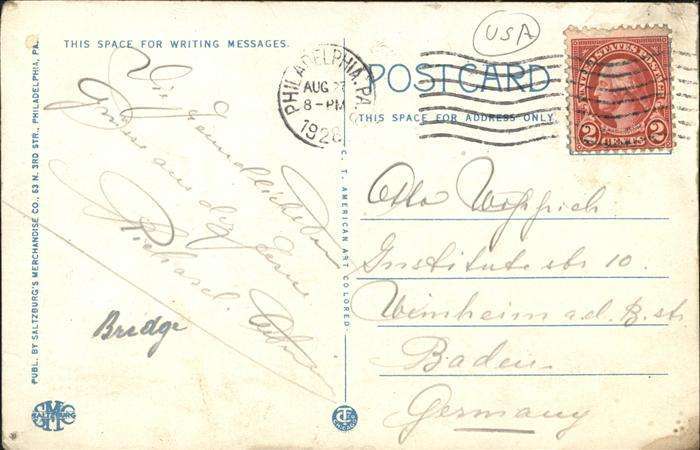 THIS SPACE FOR WRITING MESSAGES.
USA
PHILADELPHIA, PA.
AUG 27
8-PM
1928
POSTCARD
THIS SPACE FOR ADDRESS ONLY
UNITED STATES POSTAGE
2 CENTS 2
Die freundlichsten
Grüsse aus der Ferne
Bridge
Otto
Institutstr 10.
Weinheim a.d. B. str
Baden.
Germany
PUBL. BY SALTZBURG'S MERCHANDISE CO., 63 N. 3RD STR., PHILADELPHIA, PA.
C. T. AMERICAN ART COLORED.
SALTZBURG
CHICAGO